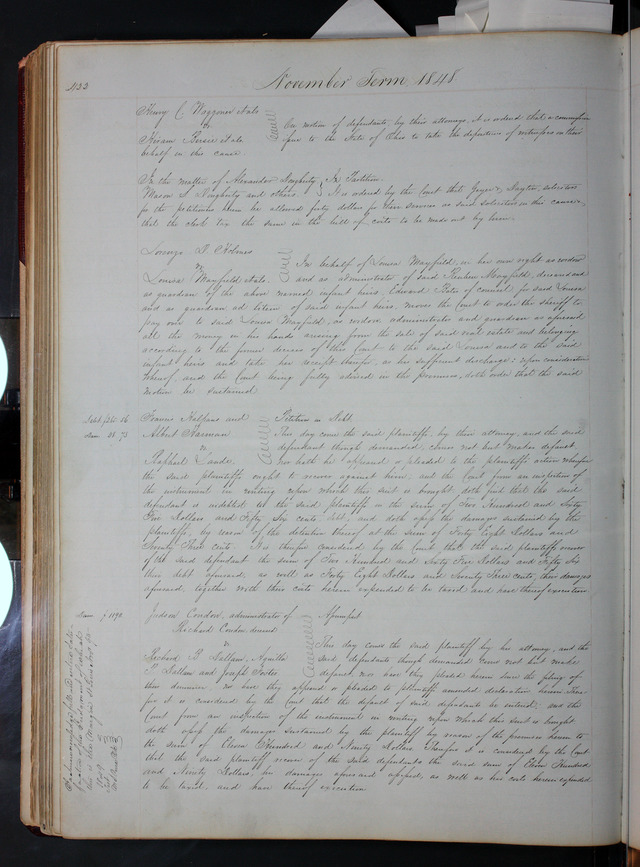 433
November Term 1848
Henry C Waggoner et als
vs
Hiram Bersie et als
On motion of defendants by their attorneys, it is ordered that a commission
issue to the State of Ohio to take the deposition of witnesses on their
behalf in this cause.
In the matter of Alexander Dougherty
Macon S Dougherty and others
In Partition
It is ordered by the Court that Geyer & Dayton, solicitors
for the petitioner herein be allowed fifty dollars for their services as said solicitors in this cause,
that the clerk tax the same in the bill of costs to be made out by him.
Lorenzo P. Holmes
vs
Louisa Mayfield et als.
In behalf of Louisa Mayfield, in her own right as widow
and as administrator of said Reuben Mayfield, deceased and
as guardian of the above named infant heirs, Edward Bates of council for said Louisa
and as guardian ad litem of said infant heirs, moves the Court to order the sheriff to
pay over to said Louisa Mayfield, as widow administrator and guardian as aforesaid
all the money in his hands arising from the sale of said real estate and belonging
according to the former decree of this Court to the said Louisa and to the said
infant heirs and take her receipt therefor, as his sufficient discharge: upon consideration
whereof, and the Court being fully advised in the premises, doth order that the said
motion be sustained
Debt $265.56
Dam 48.73
Francis Hallins and
Albert Harman
vs
Raphael Lande
Petition in Debt.
This day come the said plaintiffs, by their attorney, and the said
defendant though demanded, comes not but makes default
Nor hath he appeared or pleaded to the plaintiffs action wherefore
the said plaintiffs ought to recover against him, and the Court from an inspection of
the instrument in writing upon which this suit is brought, doth find that the said
defendant is indebted to the said plaintiffs in the sum of Two Hundred and Sixty
Five Dollars and Fifty Six cents debt, and doth assess the damages sustained by the
plaintiffs, by reason of the detention thereof at the sum of Forty Eight Dollars and
Seventy Three Cents. It is therefore considered by the Court that the said plaintiffs recover
of the said defendant the sum of Two Hundred and Sixty Five Dollars and Fifty Six
their debt aforesaid, as well as Forty Eight Dollars and Seventy Three cents, their damages
aforesaid, together with their costs herein expended to be taxed, and have thereof execution
Dam $1190
Judson Condon, administrator of
Richard Condon deceased
vs
Richard B. Hallam, Aquilla
P. Hallam and Joseph Foster
Assumpsit
This day comes the said plaintiff by his attorney, and the
said defendants though demanded come not but make
default nor have they pleaded herein since the filing of
their demurrer, nor have they appeared or pleaded to plaintiffs amended declaration herein. There-
fore it is considered by the Court that the default of said defendants be entered: and the
Court from an inspection of the instrument in writing upon which this suit is brought
doth assess the damages sustained by the plaintiff by reason of the premises herein to
the sum of Eleven Hundred and Ninety Dollars Therefore it is considered by the Court
that the said plaintiff recover of the said defendants the said sum of Eleven Hundred
and Ninety Dollars, his damages aforesaid assessed, as well as his costs herein expended
to be taxed, and have thereof execution